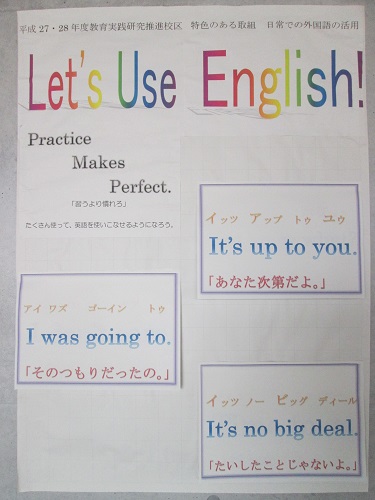 平成27・28年度教育実践研究推進校区 特色のある取組 日常での外国語の活用
Let's Use English!
Practice
Makes
Perfect.
「習うより慣れろ」
たくさん使って、英語を使いこなせるようになろう。
イッツ アップ トゥ ユゥ
It's up to you.
「あなた次第だよ。」
アイ ワズ ゴーイン トゥ
I was going to.
「そのつもりだったの。」
イッツ ノー ビッグ ディール
It's no big deal.
「たいしたことじゃないよ。」